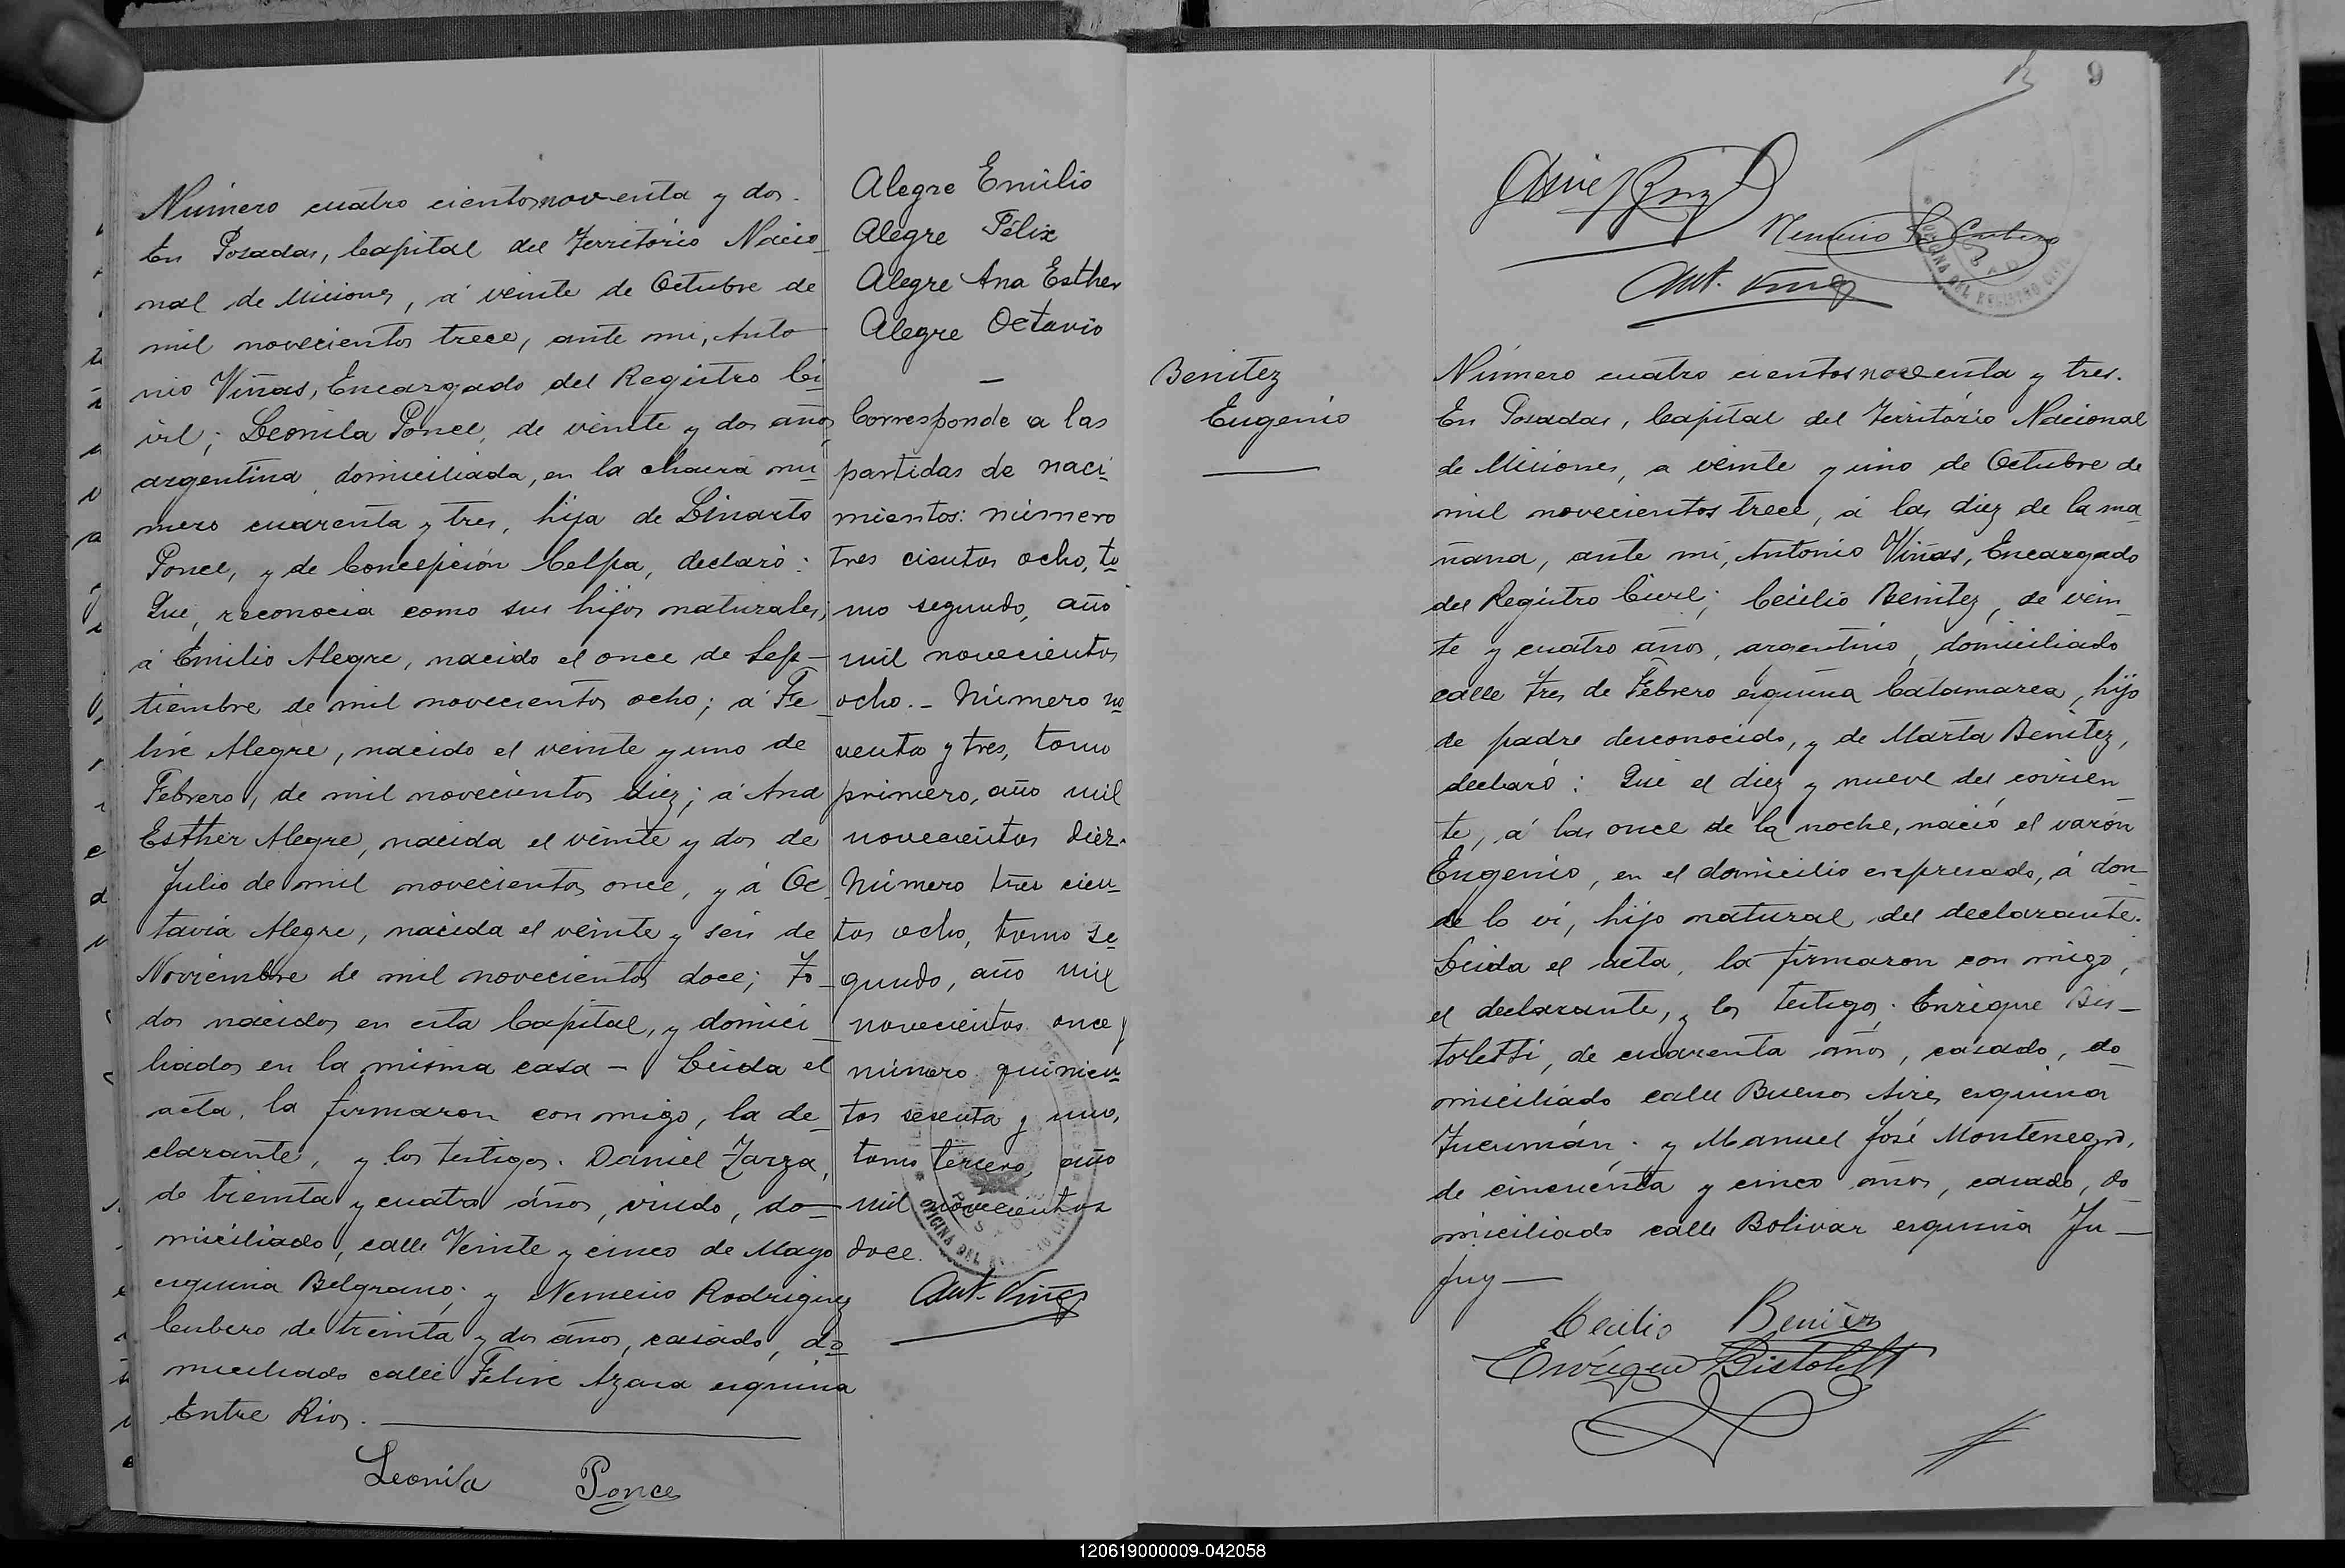 Número cuatro cientos noventa y dos.
En Posadas, Capital del Território Nacio
nal de Misiones, á veinte de Octubre de
mil novecientos trece, ante mi, Anto
nio Viñas, Encargado del Registro Ci
vil; Leonila Ponce, de veinte y dos años
argentina, domiciliada, en la chacra nu
mero cuarenta y tres, hija de Linarto
Ponce, y de Concepción Celpa, declaró:
Que, reconocia como sus hijos naturales,
á Emilio Alegre, nacido el once de Sep
tiembre de mil novecientos ocho; á Fe
lix Alegre, nacido el veinte y uno de
Febrero, de mil novecientos diez; á Ana
Esther Alegre, nacida el veinte y dos de
Julio de mil novecientos once, y á Oc
tavia Alegre, nacida el veinte y seis de
Noviembre de mil novecientos doce; To
dos nacidos en esta Capital, y domici
liados en la misma casa – Leida el
acta, la firmaron con migo, la de
clarante, y los testigos. Daniel Zarza,
de treinta y cuatro años, viudo, do
miciliado, calle Veinte y cinco de Mayo
esquina Belgrano; y Nemecio Rodriguez
Cubero de treinta y dos años, casado, do
miciliado calle Felix Azara esquina
Entre Rios.
Leonila Ponce
Alegre Emilio
Alegre Félix
Alegre Ana Esther
Alegre Octavio
–
Corresponde a las
partidas de naci
mientos: número
tres cientos ocho, to
mo segundo, año
mil novecientos
ocho. – Número no
venta y tres, tomo
primero, año mil
novecientos diez.
Número tres cien
tos ocho, tomo se
gundo, año mil
novecientos once y
número quinien
tos sesenta y uno,
tomo tercero, año
mil novecientos
doce.
Ant. Viñas
9
Ant. Viñas
Benitez
Eugenio
Número cuatro cientos noventa y tres.
En Posadas, Capital del Território Nacional
de Misiones, a veinte y uno de Octubre de
mil novecientos trece, á las diez de la ma
ñana, ante mi, Antonio Viñas, Encargado
del Registro Civil; Cecilio Benitez, de vein
te y cuatro años, argentino, domiciliado
calle Tres de Febrero esquina Catamarca, hijo
de padre desconocido, y de Marta Benitez,
declaró: Que el diez y nueve del corrien
te, á las once de la noche, nació el varón
Eugenio, en el domicilio expresado, á don
de lo vi, hijo natural del declarante.
Leida el acta, la firmaron con migo,
el declarante, y los testigos. Enrique Bis
toletti, de cuarenta años, casado, do
miciliado calle Buenos Aires esquina
Tucumán. y Manuel José Montenegro,
de cincuenta y cinco años, casado, do
miciliado calle Bolivar esquina Ju
juy
Cecilio Benitez
Enrique Bistoletti
120619000009-042058